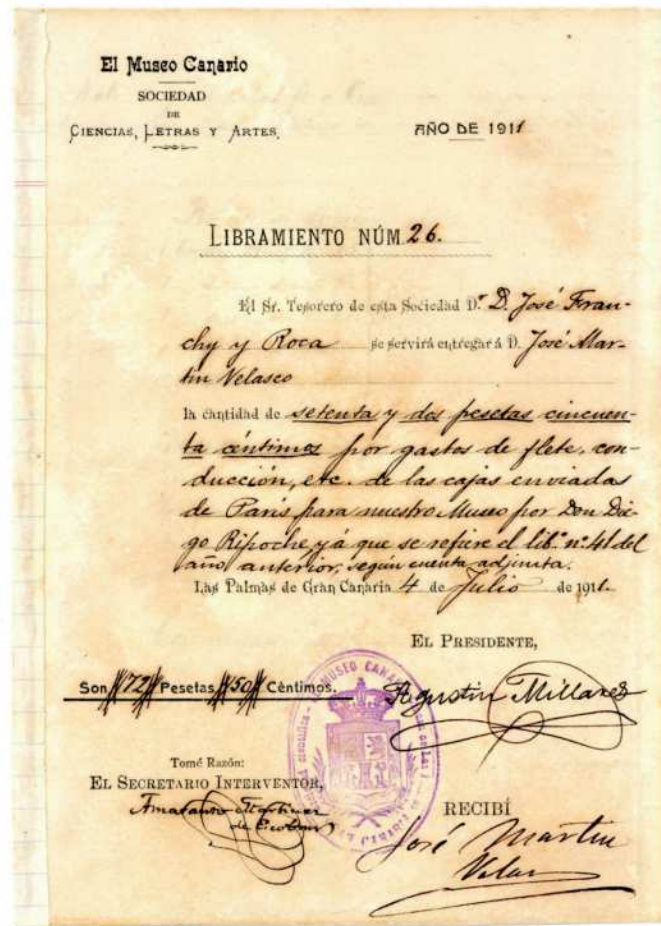 El Museo Canario
SOCIEDAD
DE
CIENCIAS, LETRAS Y ARTES.
AÑO DE 1911
LIBRAMIENTO NÚM 26.
El Sr. Tesorero de esta Sociedad D. D. José Fran-
chy y Roca se servirá entregar á D. José Mar-
tin Velasco
la cantidad de setenta y dos pesetas cincuen-
ta céntimos por gastos de flete, con-
ducción, etc. de las cajas enviadas
de Paris para nuestro Museo por Don Die-
go Ripoche, y á que se refiere el lib.º nº 41 del
año anterior, según cuenta adjunta.
Las Palmas de Gran Canaria 4 de Julio de 1911.
EL PRESIDENTE,
Son 72 Pesetas 50 Céntimos.
Agustin Millares
MUSEO CANARIO
Tomé Razón:
EL SECRETARIO INTERVENTOR,
Amaranto Martinez
de Escobar
RECIBÍ
José Martin